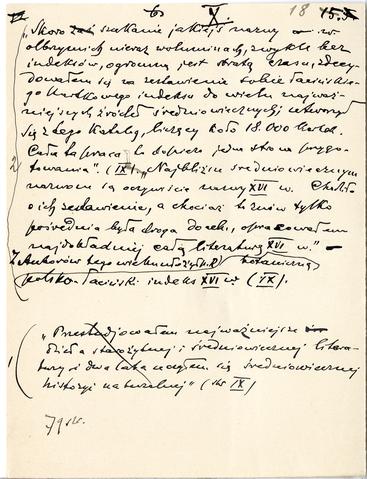 6) X. 18 15.
„Skoro zaś szukanie jakiejś nazwy w
olbrzymich nieraz woluminach, zwykle bez
indeksów, ogromną jest stratą czasu, zdecy-
dowałem się na zestawienie sobie łacińskie-
go kartkowego indeksu do wielu najważ-
niejszych źródeł średniowiecznych; utworzył
się z tego katalog, liczący koło 18.000 kartek.
Cała ta praca to dopiero jedna strona przygo-
towania". (IX) „Najbliższe średniowiecznym
nazwom są oczywiście nazwy XVI w. Chodziło
o ich zestawienie, a chociaż to znów tylko
pośrednia była droga do celu, opracowałem
najdokładniej całą literaturę XVI w." –
Z autorów tego wieku botaniczną
polsko-łaciński indeks XVI w. (IX).
„Przestudjowałem najważniejsze
dzieła starożytnej i średniowiecznej litera-
tury i dwa lata uczyłem się średniowiecznej
historyi naturalnej" (str IX)